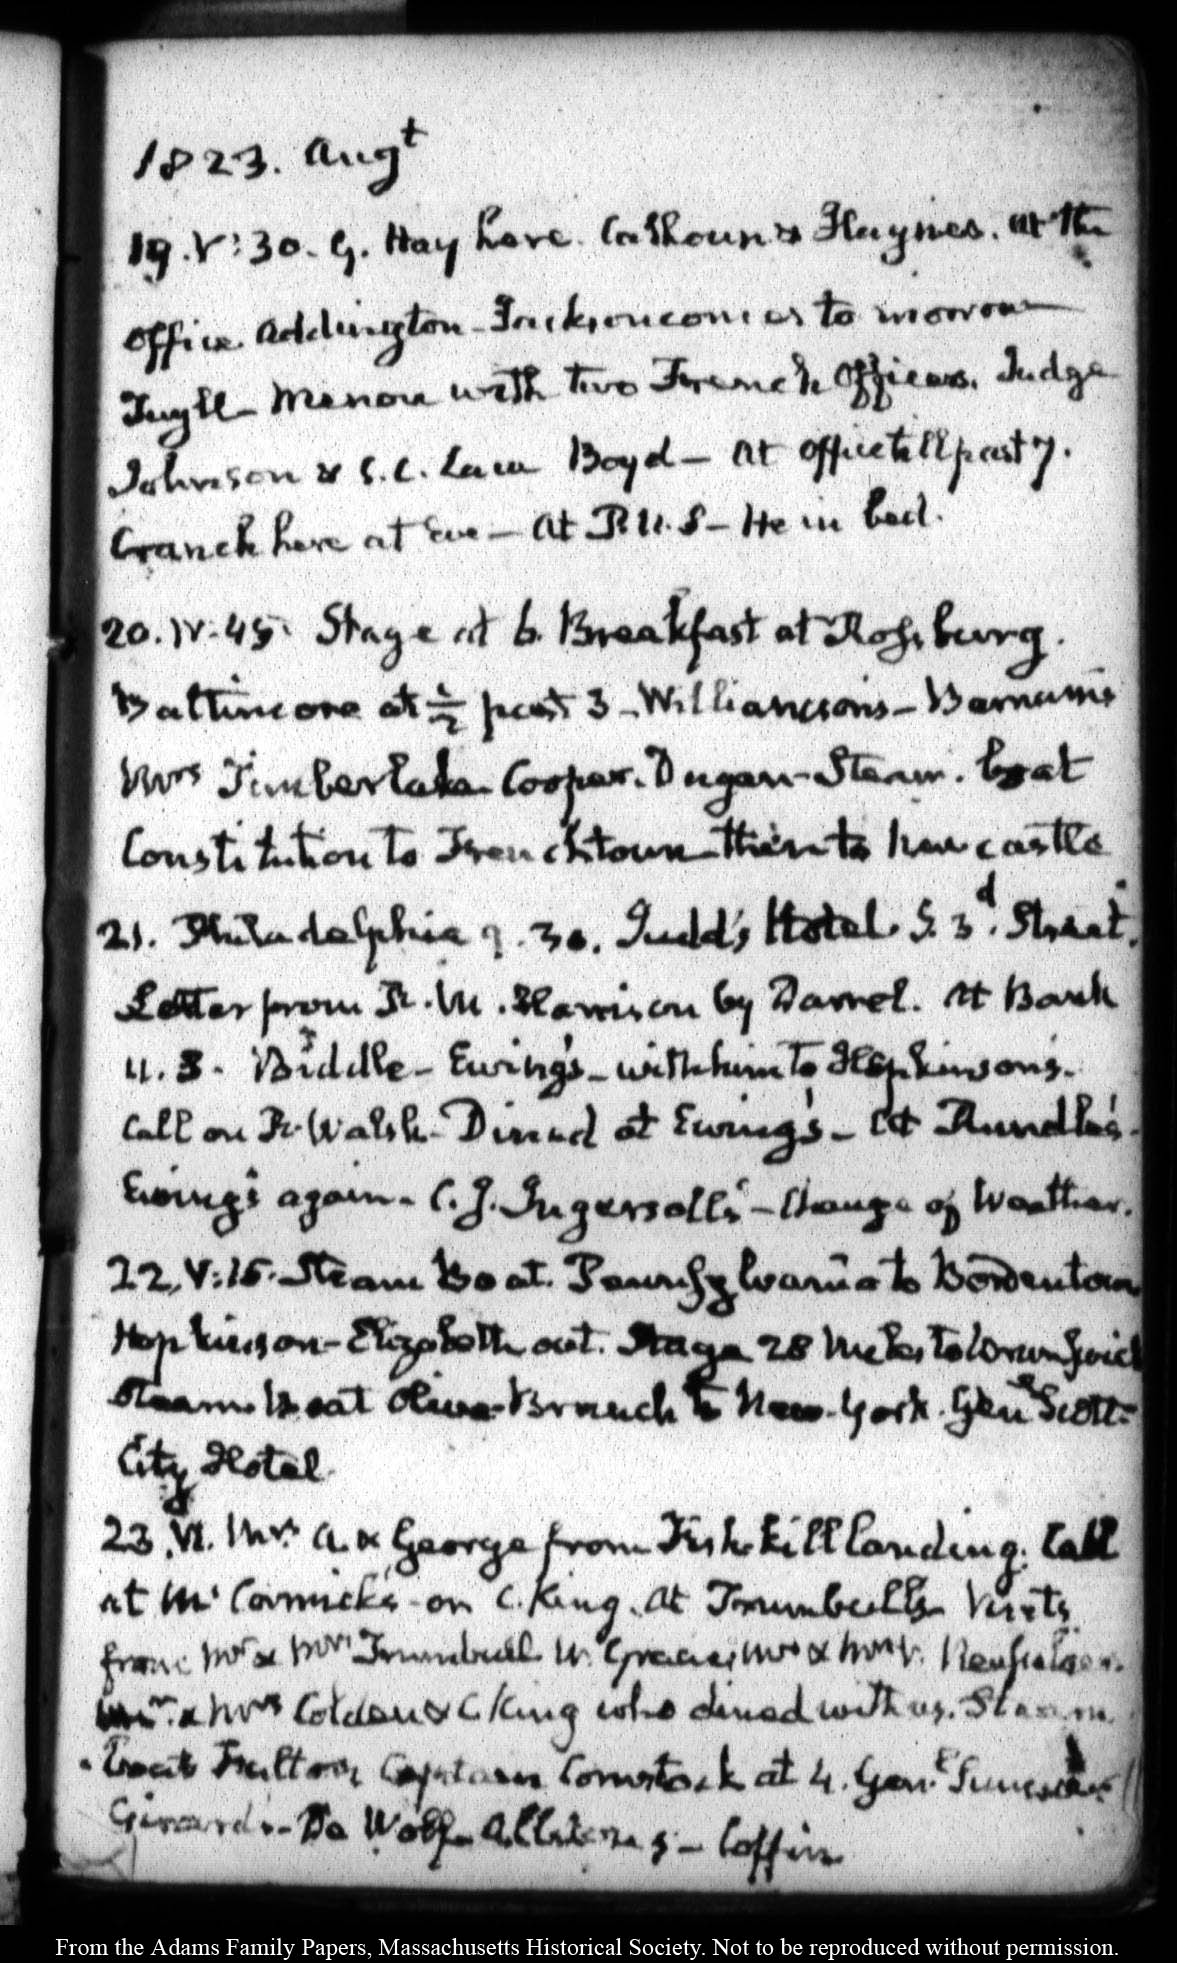 1823. Augt
19. V:30. G. Hay here. Calhoun & Haynes. At the
Office. Addington. Jackson comes to morrow
Tuyll. Menou with two French Officers. Judge
Johnson & S. C. Law Boyd — At office till past 7.
Cranch here at Eve — At P.U.S — He in bed.
20. IV. 45. Stage at 6. Breakfast at Rossburg.
Baltimore at ½ past 3 — Williamsons — Barnums
Mrs Timberlake. Cooper. Dugan — Steam. boat
Constitution to Frenchtown — then to New castle
21. Philadelphia . 30. Judd's Hotel. S. 3d. Street.
Letter from R. M. Harrison by Darrel. At Bank
U.S. Biddle — Ewing's — with him to Hopkinson's.
Call on R. Walsh. Dined at Ewing's — At Rundle's.
Ewing's again — C. J. Ingersoll's — Change of Weather.
22. V:15. Steam Boat. Pennsylvania to Bordentown
Hopkinson — Elizabeth out. Stage 28 Miles to Brunswick
Steam Boat Olive Branch to New-York. Genl Scott —
City Hotel.
23. VI. Mrs A. & George from Fishkill landing. Call
at McCormick's — on C. King. At Trumbull's Visits
from Mr & Mrs Trumbull. W. Gracie, Mr & Mrs V. Rensselaer.
Mr. & Mrs Colden & C King who dined with us. Steam
Boat Fulton, Captain Comstock at 4. Genl
Girard's — De Wolf — — Coffin